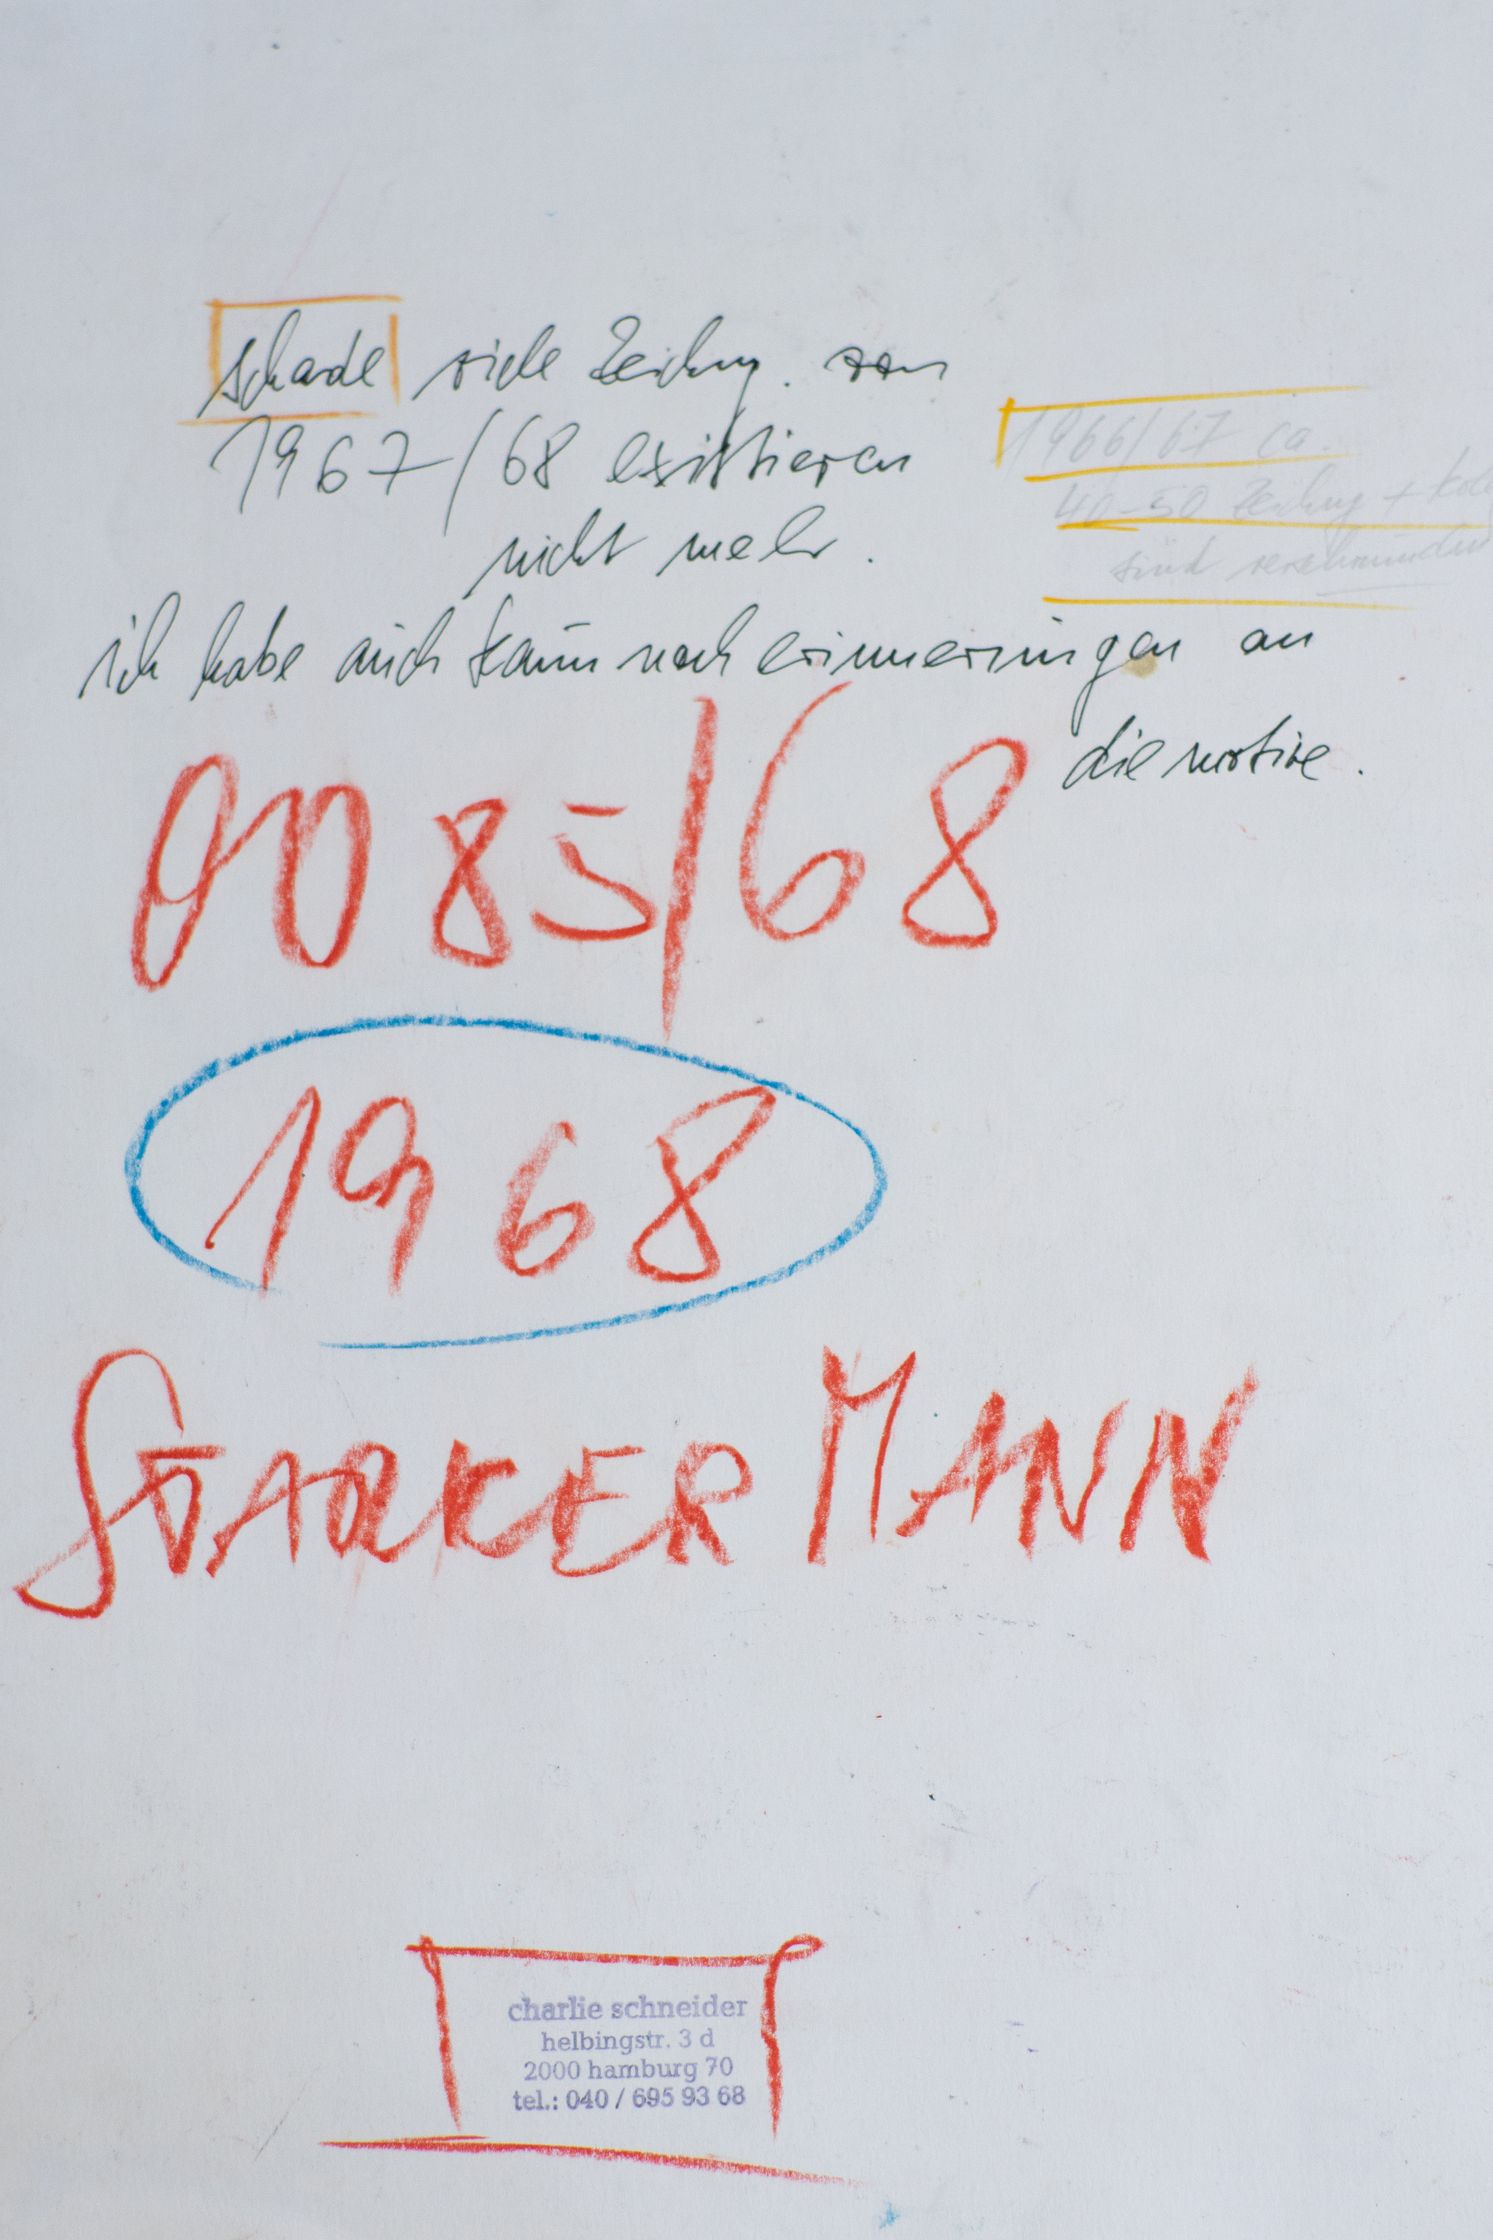 schade viele Zeichng. von
1967/68 existieren
nicht mehr.
1966/67 ca.
40-50 Zeichng +
sind verschwunden
ich habe auch kaum noch erinnerungen an
die motive.
0085/68
1968
STARKER MANN
charlie schneider
helbingstr. 3 d
2000 hamburg 70
tel.: 040 / 695 93 68